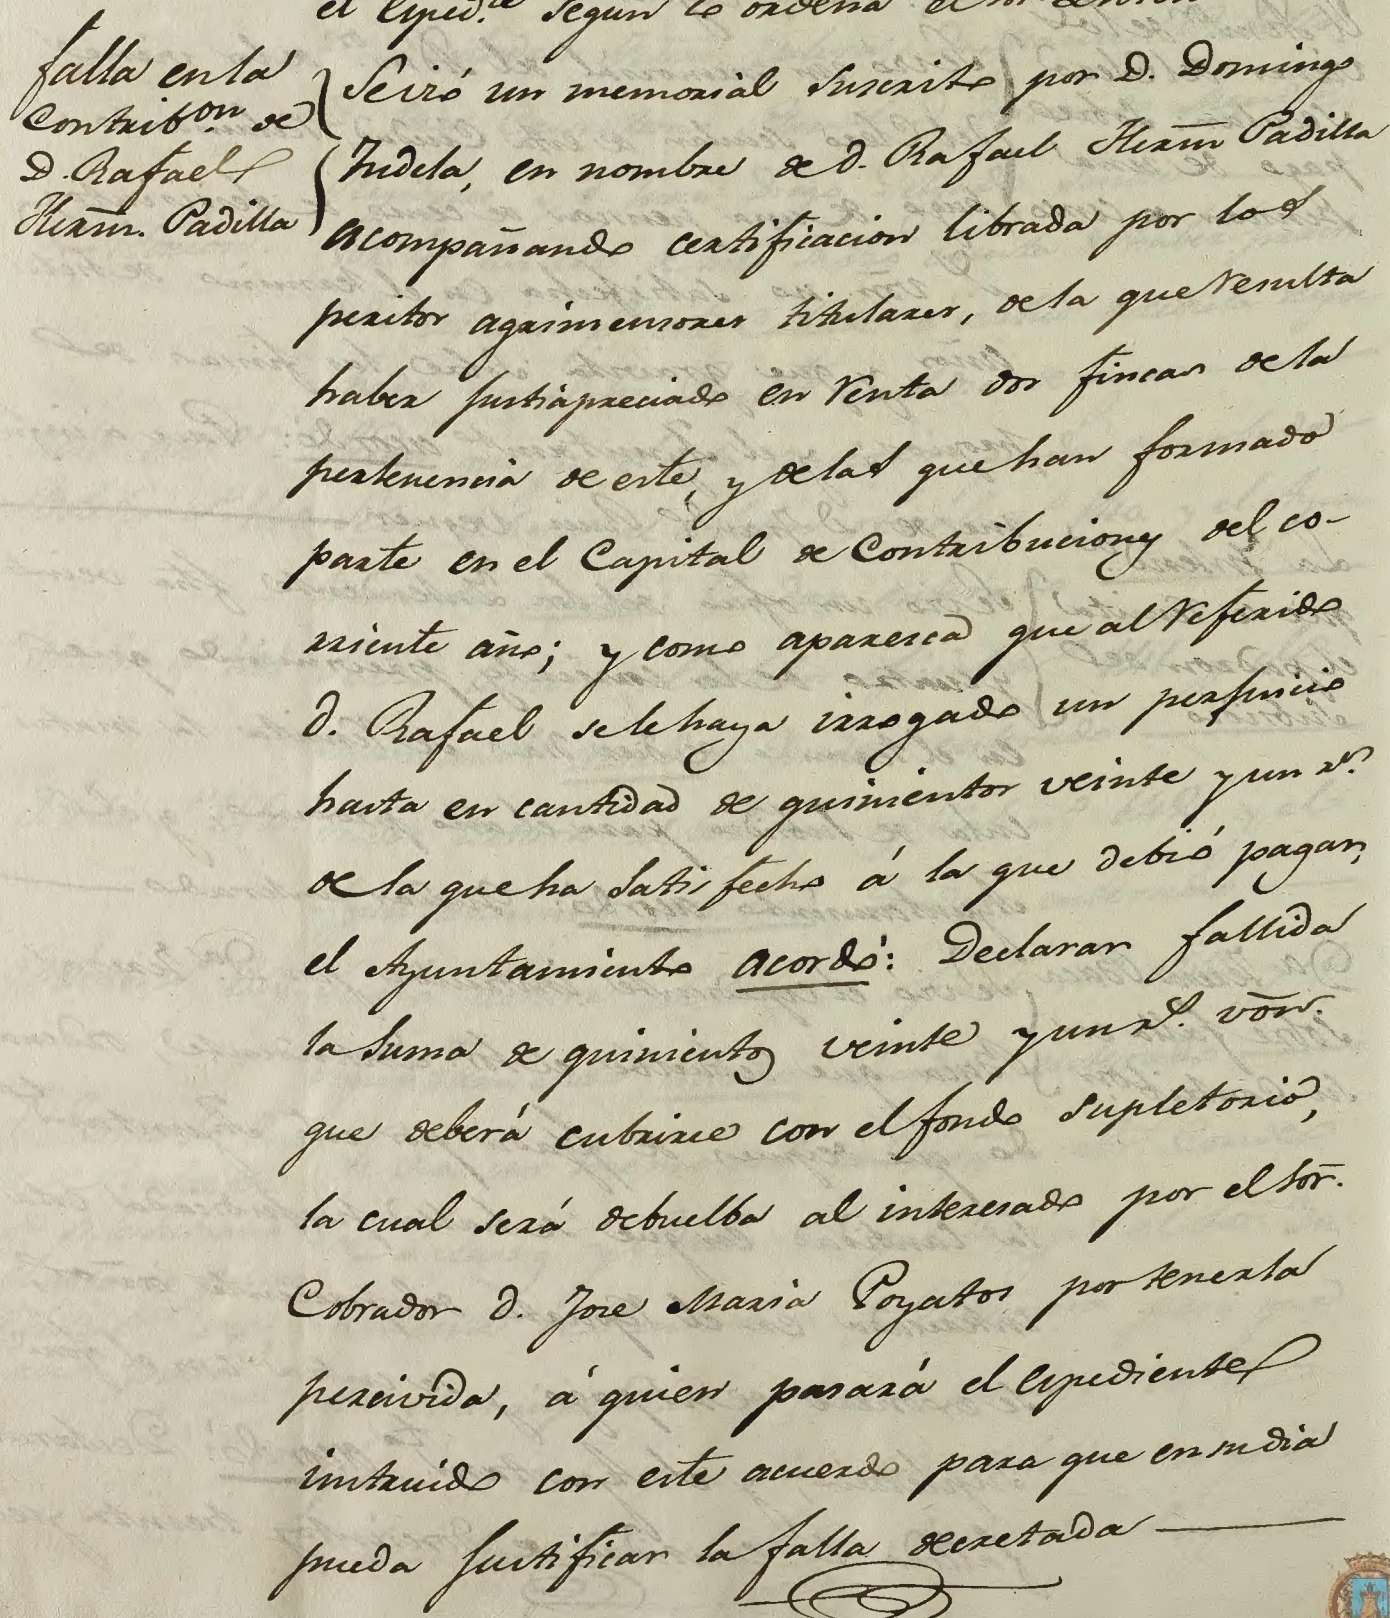 el Esped.te segun lo ordena el
falla en la
Contrib.on de
D. Rafael
Herñn. Padilla
Se leyó un memorial suscrito por D. Domingo
Tudela, en nombre de d. Rafael Herñn Padilla
acompañando certificacion librada por los
peritos agrimensores titulares, de la que resulta
haber justiapreciado en venta dos fincas de la
pertenencia de este, y de las que han formado
parte en el Capital de Contribuciones del co-
rriente año; y como aparesca que al referido
d. Rafael se le haya irrogado un perjuicio
hasta en cantidad de quinientos veinte y un r.s
de la que ha satisfecho á la que debió pagar,
el Ayuntamiento acordó: Declarar fallida
la suma de quinientos veinte y un r.s von.
que deberá cubrirse con el fondo supletorio,
la cual será debuelba al interesado por el Sor.
Cobrador d. Jose Maria Poyatos por tenerla
percivida, á quien pasará el espediente
instruido con este acuerdo para que en su dia
pueda justificar la falla decretada